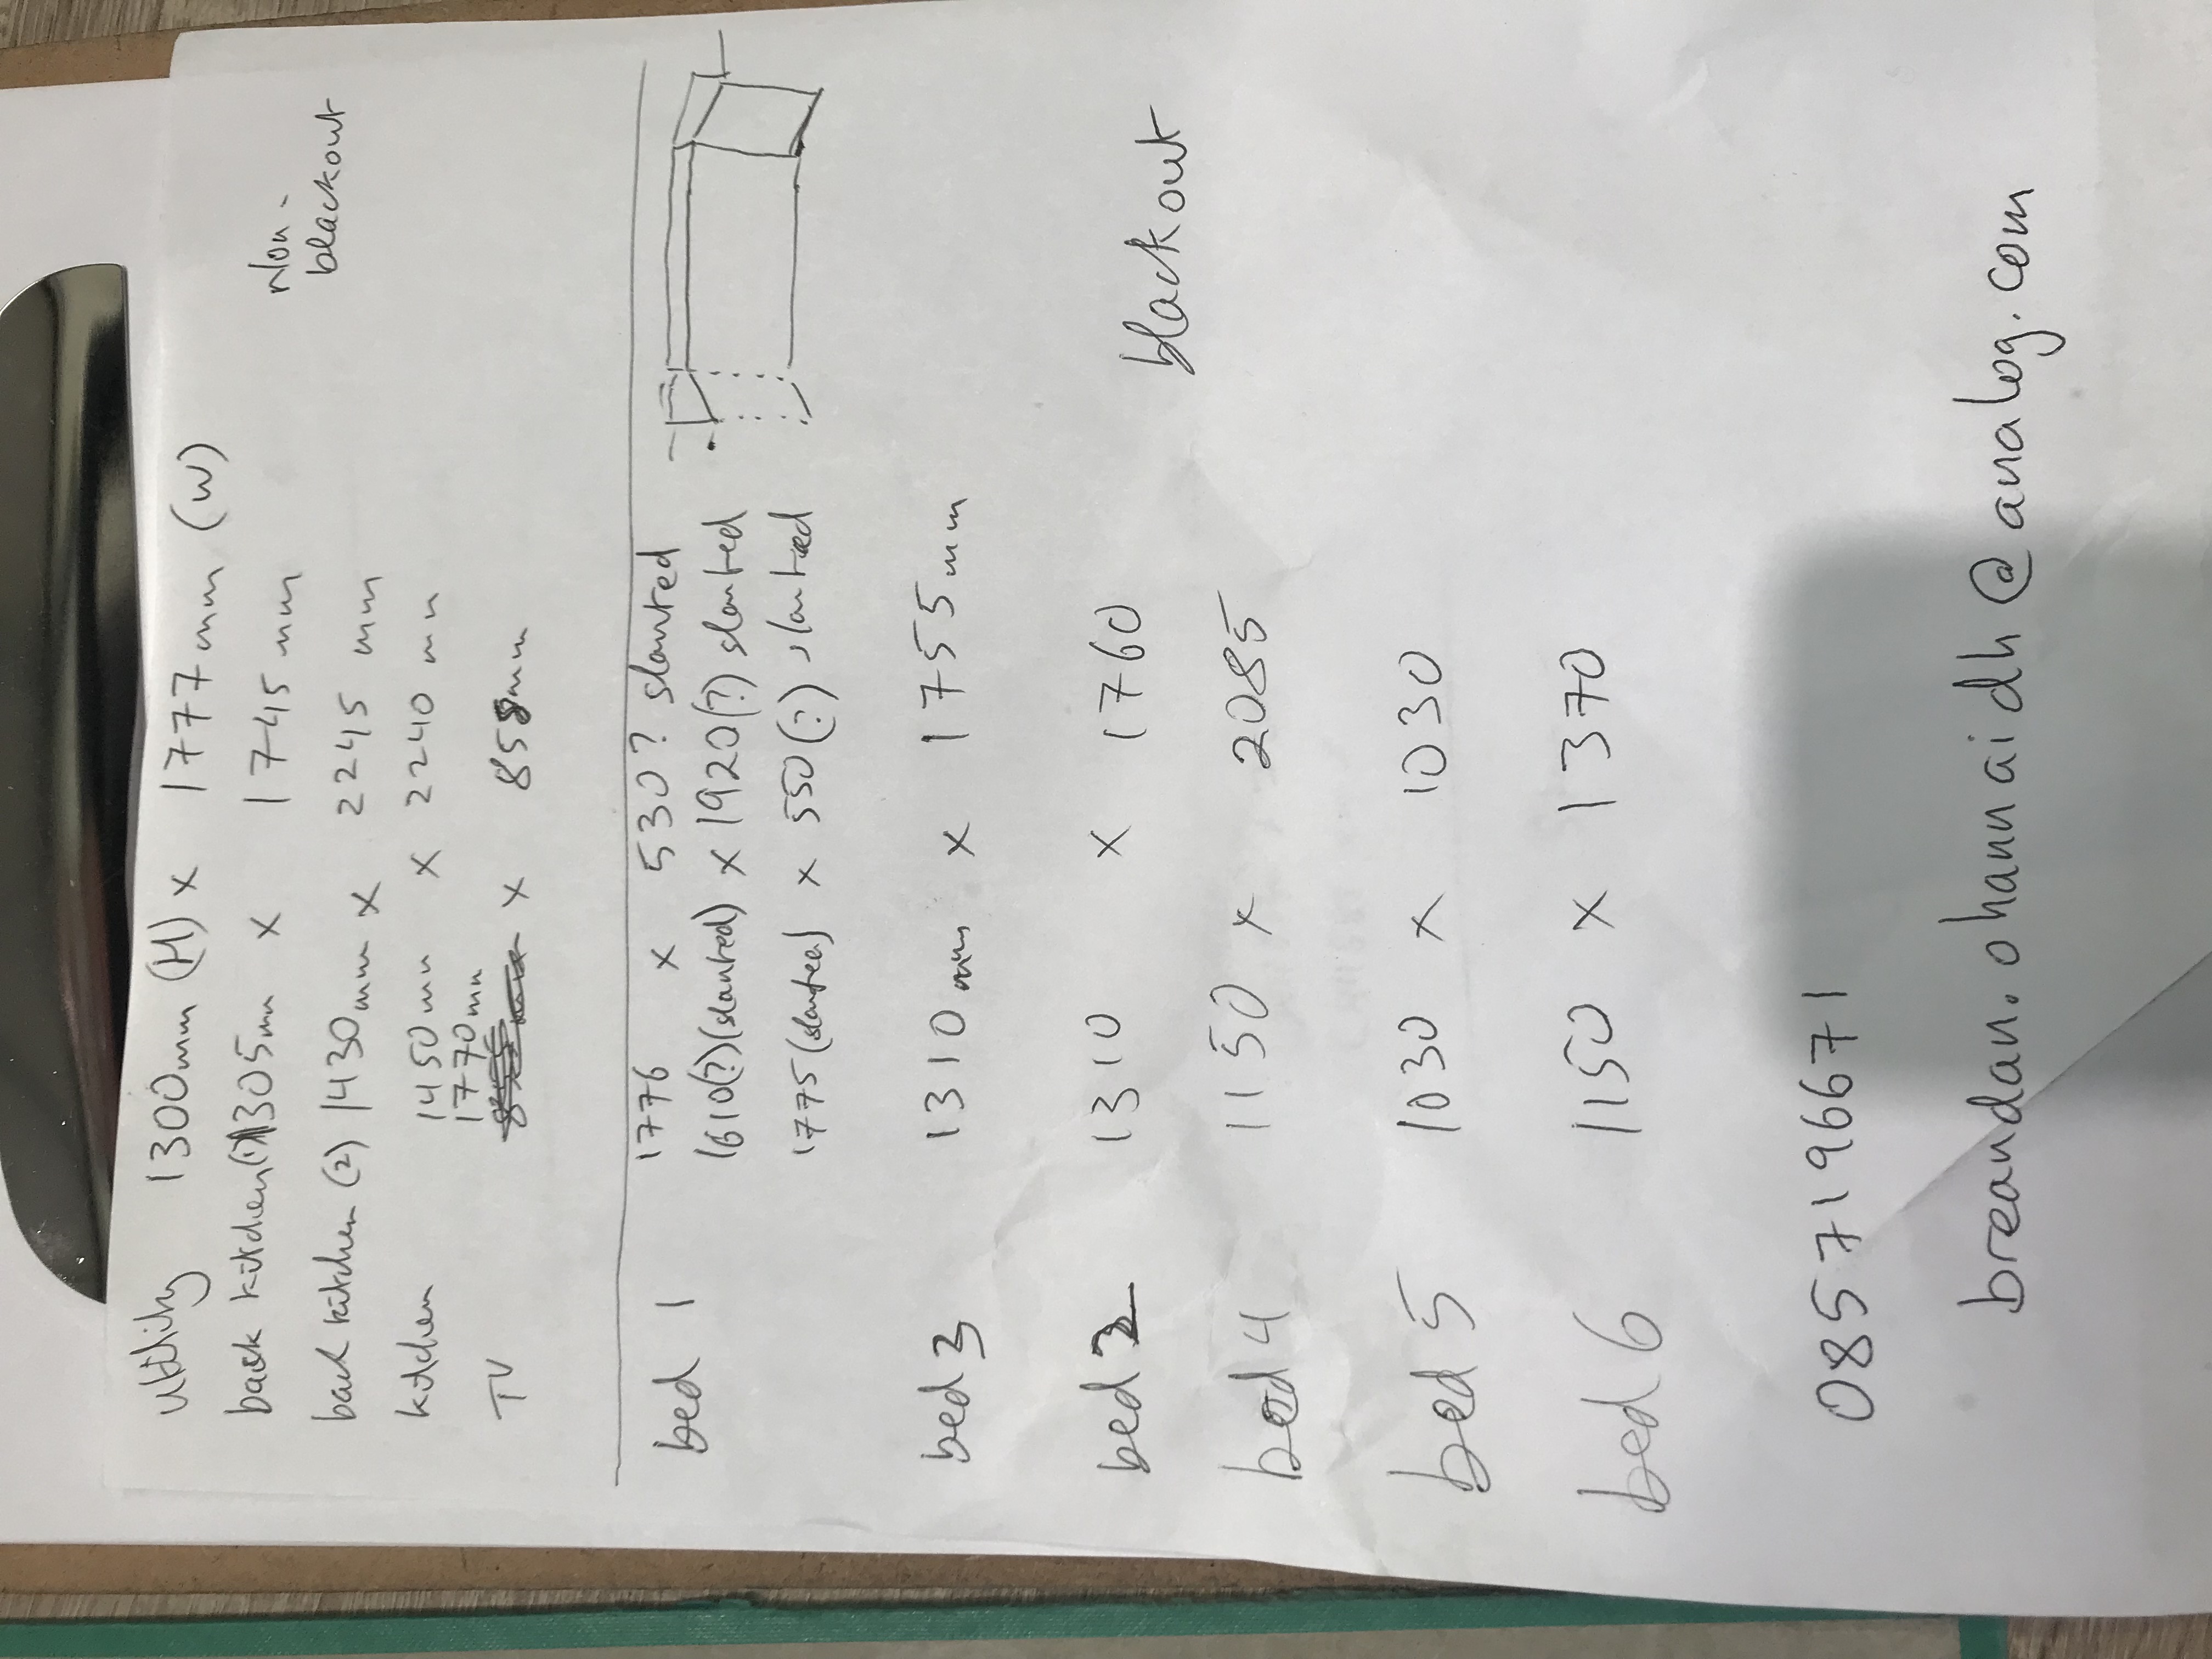 Utility 1300mm (H) x 1777mm (W)
back kitchen(1) 1305mm x 1745 mm
Non-
blackout
back kitchen (2) 1430mm x 2245 mm
kitchen 1450mm x 2240 mm
TV 1770mm x 855mm
bed 1 1776 x 530? slanted
1610(?)(slanted) x 1920(?) slanted
1775(slanted) x 550(?) slanted
bed 3 1310mm x 1755mm
bed 2 1310 x 1760
blackout
bed 4 1150 x 2085
bed 5 1030 x 1030
bed 6 1150 x 1370
0857196671
breandan.ohannaidh@analog.com